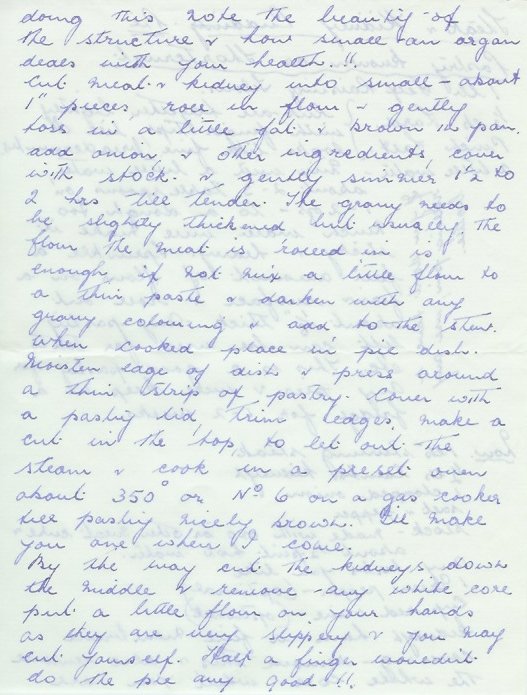 doing this note the beauty of
the structure & how small an organ
deals with your health.!!
Cut meat & kidney into small - about
1" pieces roll in flour & gently
toss in a little fat & brown in pan.
add onion, & other ingredients, cover
with stock. & gently simmer 1½ to
2 hrs till tender. The gravy needs to
be slightly thickened but usually the
flour the meat is rolled in is
enough, if not mix a little flour to
a thin paste & darken with any
gravy colouring & add to the stew.
When cooked place in pie dish.
Moisten edge of dish & press around
a thin strip of pastry. Cover with
a pastry lid, trim edges, make a
cut in the top, to let out the
steam & cook in a preset oven
about 350° or No 6 on a gas cooker
till pastry nicely brown. I'll make
you one when I come.
By the way cut the kidneys down
the middle & remove any white core
put a little flour on your hands
as they are very slippery & you may
cut yourself. Half a finger wouldn't
do the pie any good!!